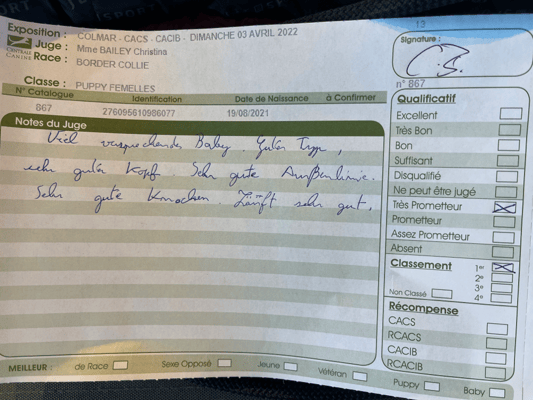 13
Exposition : COLMAR - CACS - CACIB - DIMANCHE 03 AVRIL 2022
Juge : Mme BAILEY Christina
Race : BORDER COLLIE
CENTRALE CANINE
Signature :
n° 867
Classe : PUPPY FEMELLES
N° Catalogue Identification Date de Naissance à Confirmer
867 276095610986077 19/08/2021
Notes du Juge
Viel versprechender Baby. Guter Typ,
sehr guter Kopf. Sehr gute Außenlinie.
Sehr gute Knochen. Läuft sehr gut.
Qualificatif
Excellent
Très Bon
Bon
Suffisant
Disqualifié
Ne peut être jugé
Très Prometteur
Prometteur
Assez Prometteur
Absent
Classement 1er
2e
3e
Non Classé 4e
Récompense
CACS
RCACS
CACIB
RCACIB
MEILLEUR : de Race Sexe Opposé Jeune Vétéran Puppy Baby